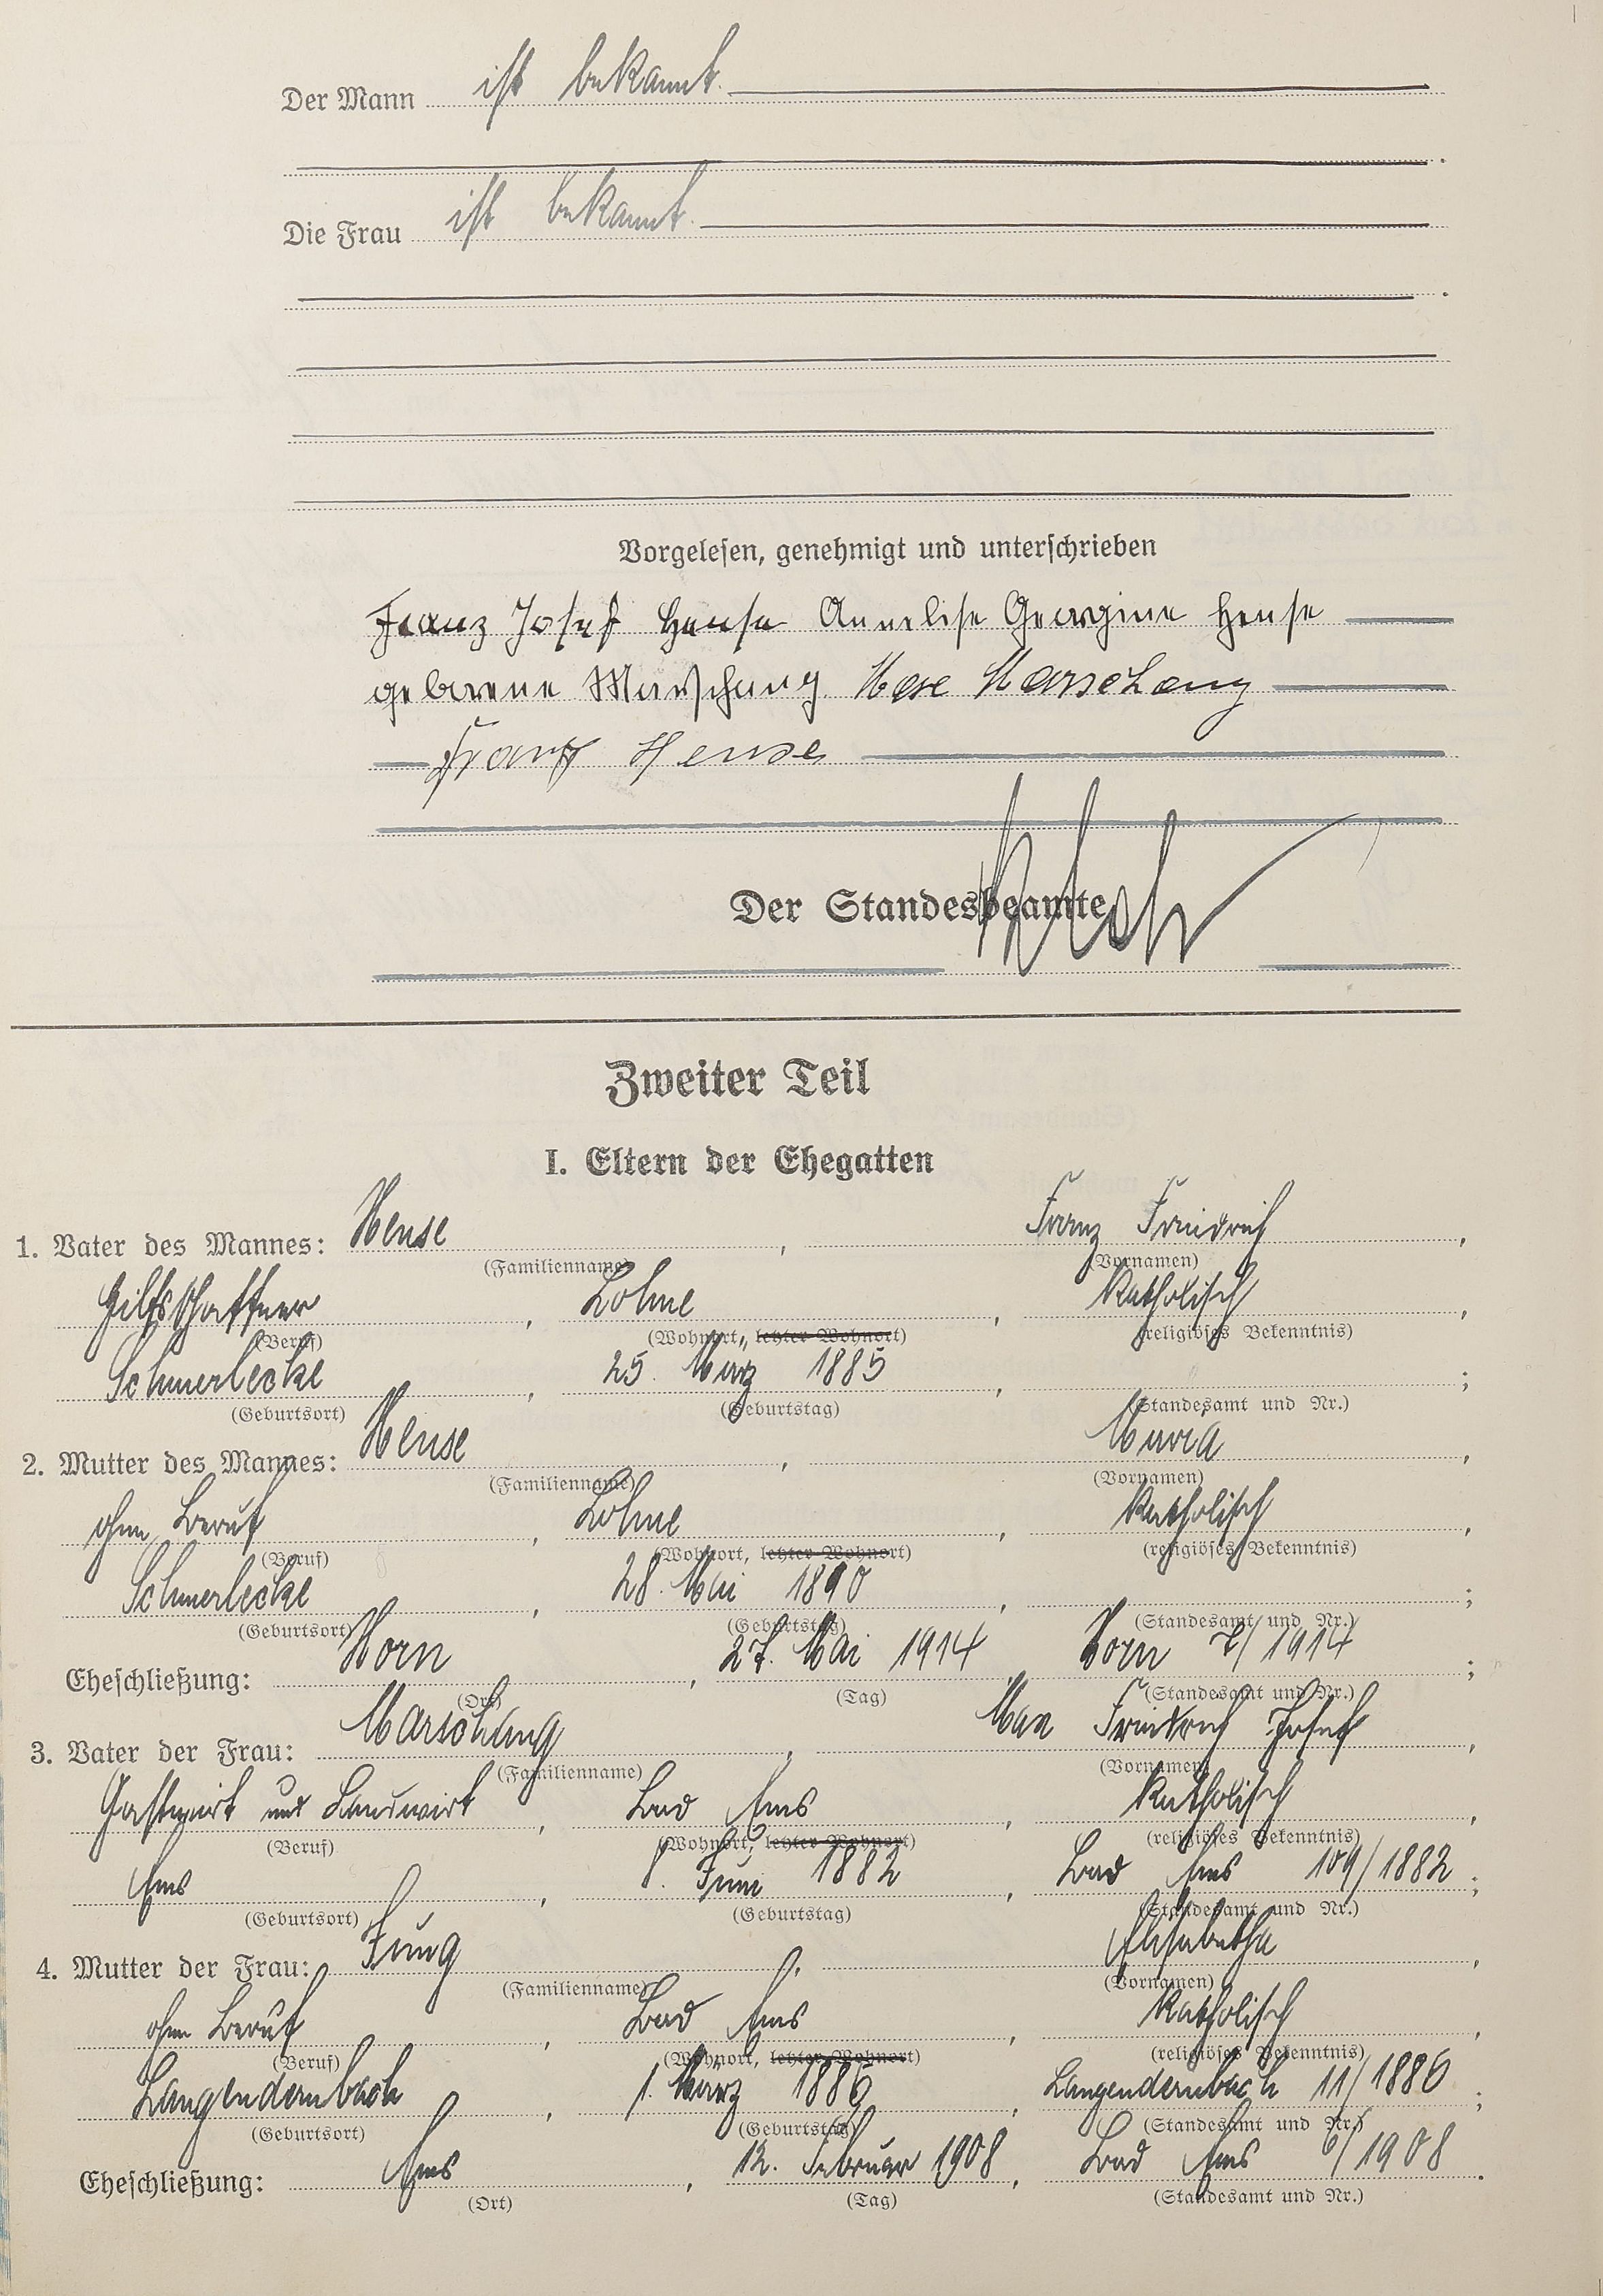 Der Mann ist bekannt.
Die Frau ist bekannt.
Vorgelesen, genehmigt und unterschrieben
Franz Josef Hense Annelise Georgine Hense
geborene Marschang Max Marschang
Franz Hense
Der Standesbeamte
Zweiter Teil
I. Eltern der Ehegatten
1. Vater des Mannes: Hense, Franz Friedrich,
(Familienname) (Vornamen)
Hilfsschaffner, Lohne, katholisch,
(Beruf) (Wohnort, letzter Wohnort) (religiöses Bekenntnis)
Schmerlecke, 25. März 1885;
(Geburtsort) (Geburtstag) (Standesamt und Nr.)
2. Mutter des Mannes: Hense, Maria,
(Familienname) (Vornamen)
ohne Beruf, Lohne, katholisch,
(Beruf) (Wohnort, letzter Wohnort) (religiöses Bekenntnis)
Schmerlecke, 28. Mai 1890;
(Geburtsort) (Geburtstag) (Standesamt und Nr.)
Eheschließung: Horn, 27. Mai 1914, Horn 7/1914;
(Ort) (Tag) (Standesamt und Nr.)
3. Vater der Frau: Marschang, Max Friedrich Josef,
(Familienname) (Vornamen)
Gastwirt und Landwirt, Bad Ems, katholisch,
(Beruf) (Wohnort, letzter Wohnort) (religiöses Bekenntnis)
Ems, 8. Juni 1882, Bad Ems 109/1882;
(Geburtsort) (Geburtstag) (Standesamt und Nr.)
4. Mutter der Frau: Jung, Elisabetha,
(Familienname) (Vornamen)
ohne Beruf, Bad Ems, katholisch,
(Beruf) (Wohnort, letzter Wohnort) (religiöses Bekenntnis)
Langendernbach, 1. März 1886, Langendernbach 11/1886;
(Geburtsort) (Geburtstag) (Standesamt und Nr.)
Eheschließung: Ems, 12. Februar 1908, Bad Ems 6/1908.
(Ort) (Tag) (Standesamt und Nr.)